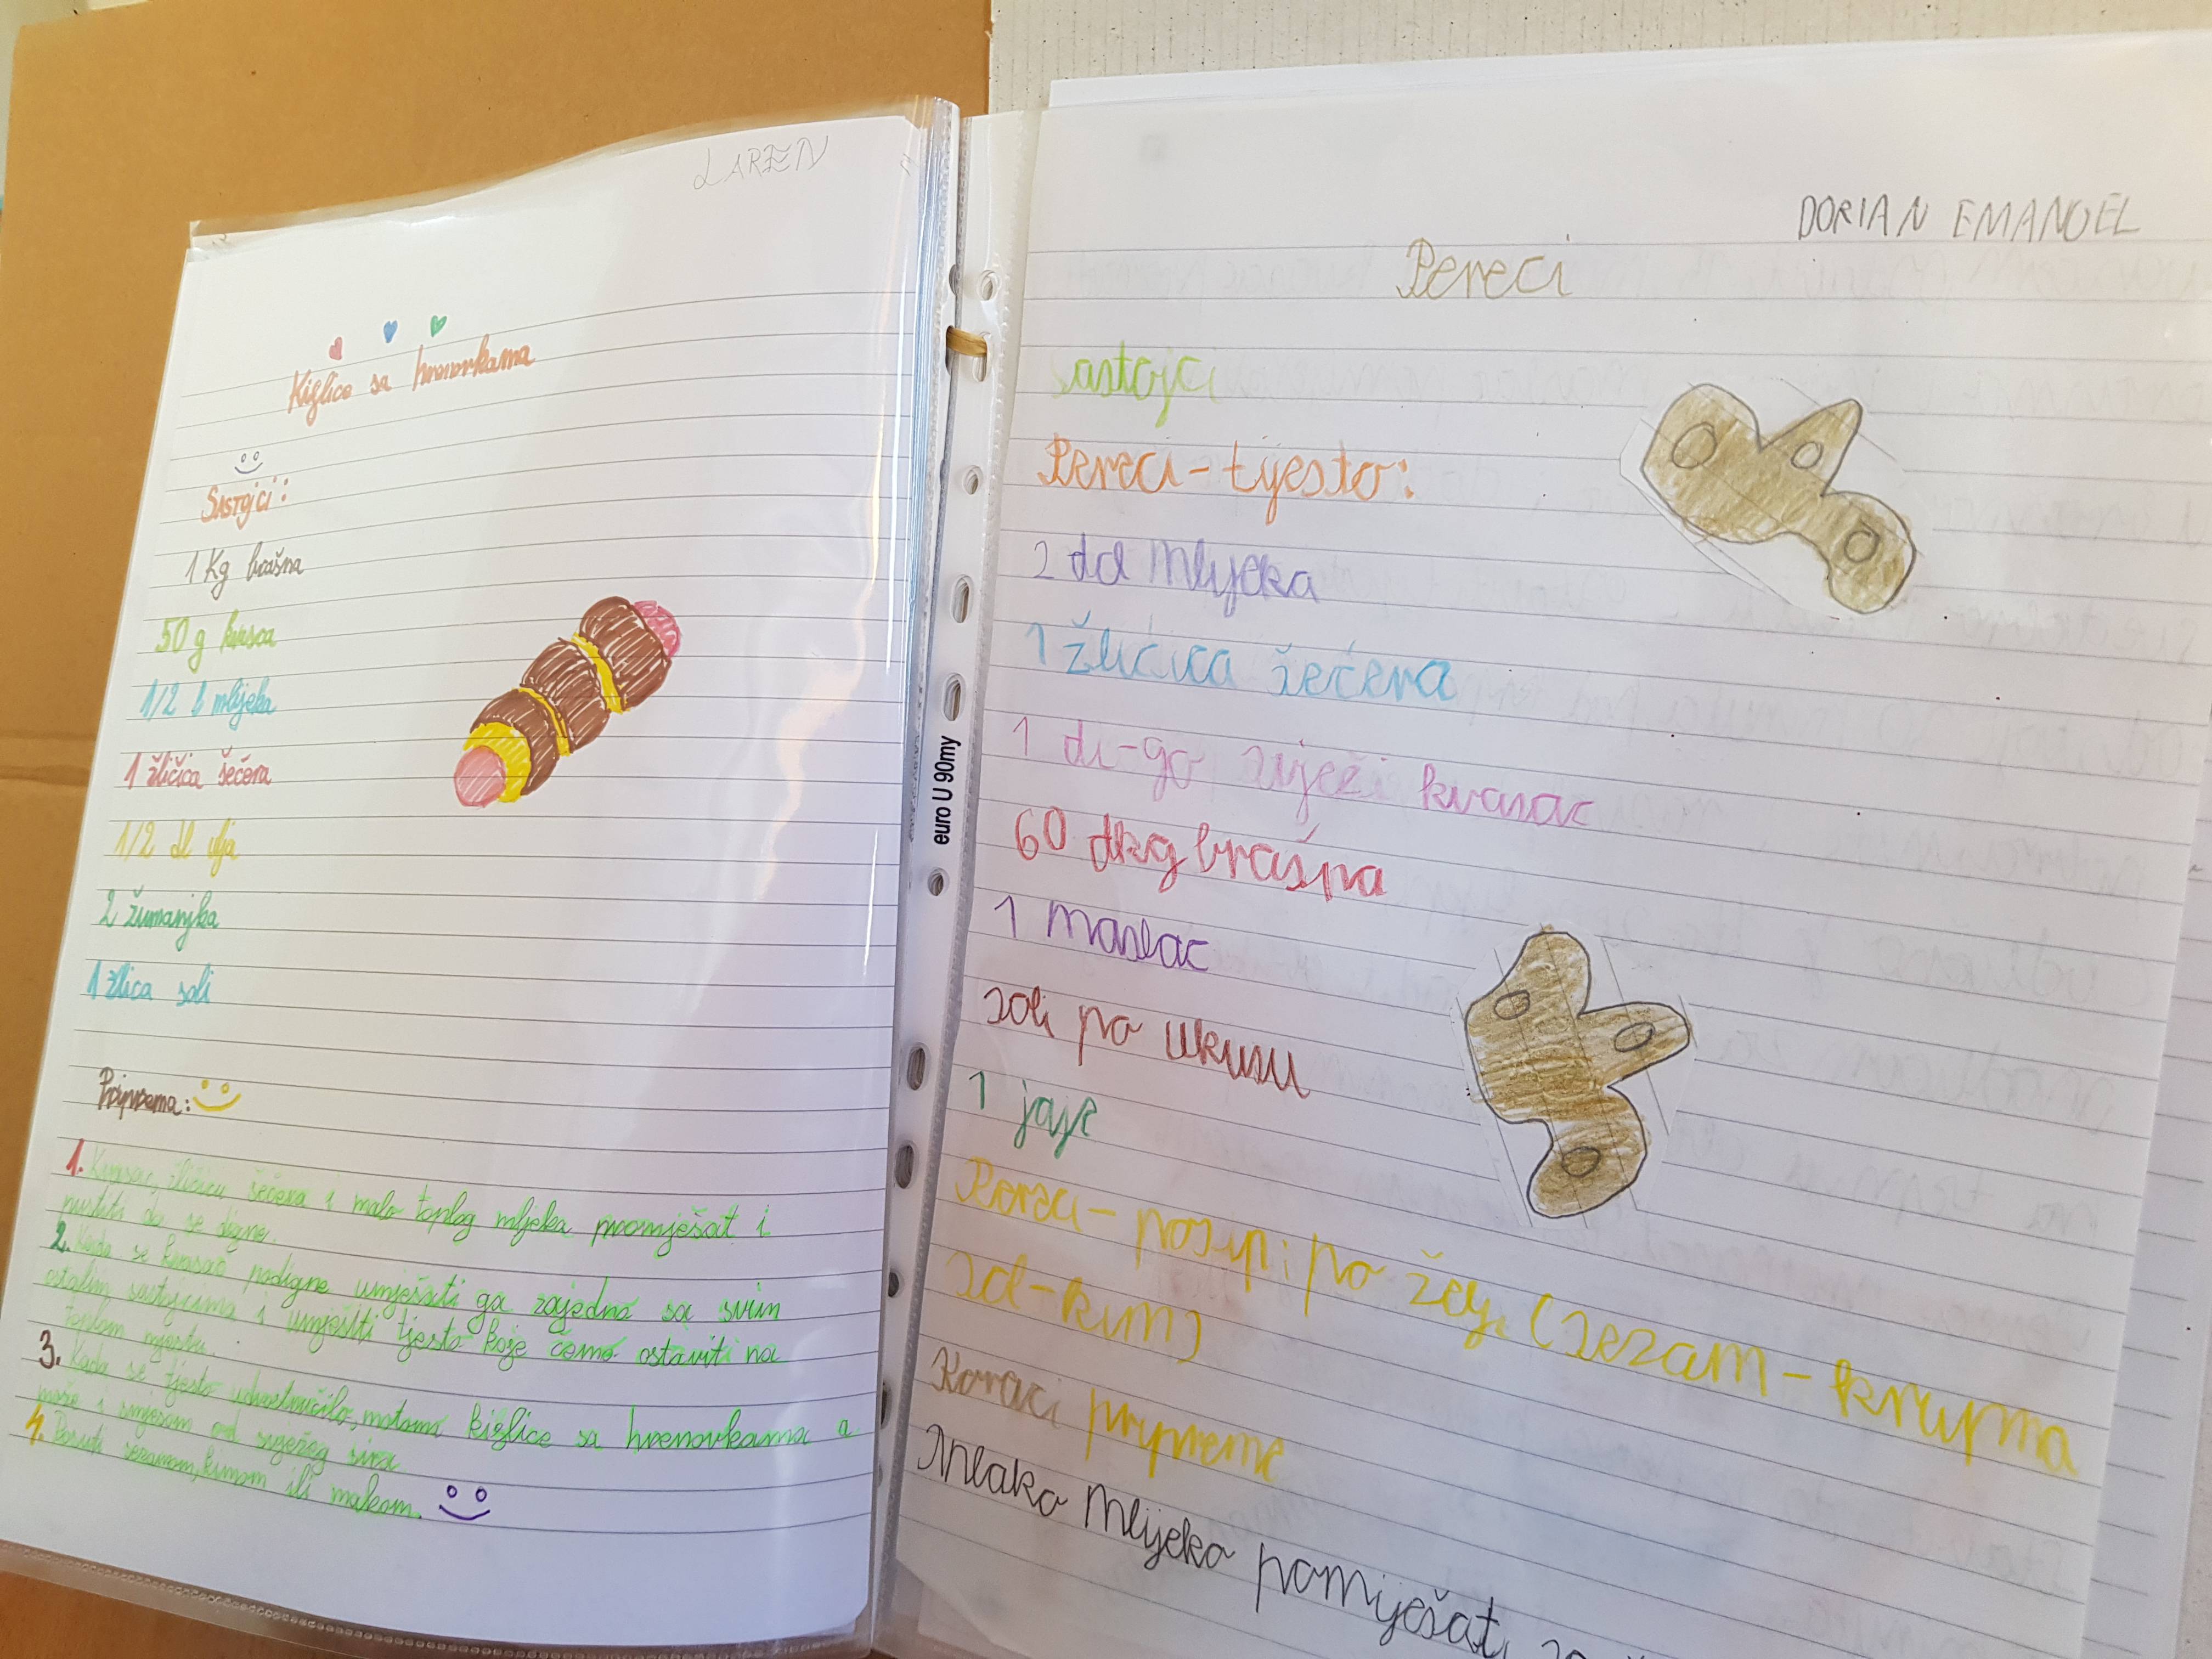 LAREN
Kiflice sa hrenovkama
Sastojci:
1 Kg brašna
50 g kvasca
1/2 l mlijeka
1 žličica šećera
1/2 dl ulja
2 žumanjka
1 žlica soli
Priprema:
1. Kvasac, žličicu šećera i malo toplog mljeka promješat i
pustiti da se digne.
2. Kada se kvasac podigne umješati ga zajedno sa svim
ostalim sastojcima i umješiti tjesto koje ćemo ostaviti na
toplom mjestu.
3. Kada se tjesto udvostručilo, motamo kiflice sa hrenovkama a
može i smjesom od svježeg sira
4. Posuti sezamom, kimom ili makom.
euro U 90my
DORIAN EMANOEL
Pereci
sastojci
Pereci-tijesto:
2 dcl Mlijeka
1 žličica šećera
1 di-go svježi kvasac
60 dkg brašna
1 Maslac
soli po ukusu
1 jaje
Pereci-posip: po želj. (sezam-krupna
sol-kim)
Koraci pripreme
Mlako Mlijeko pomiješati